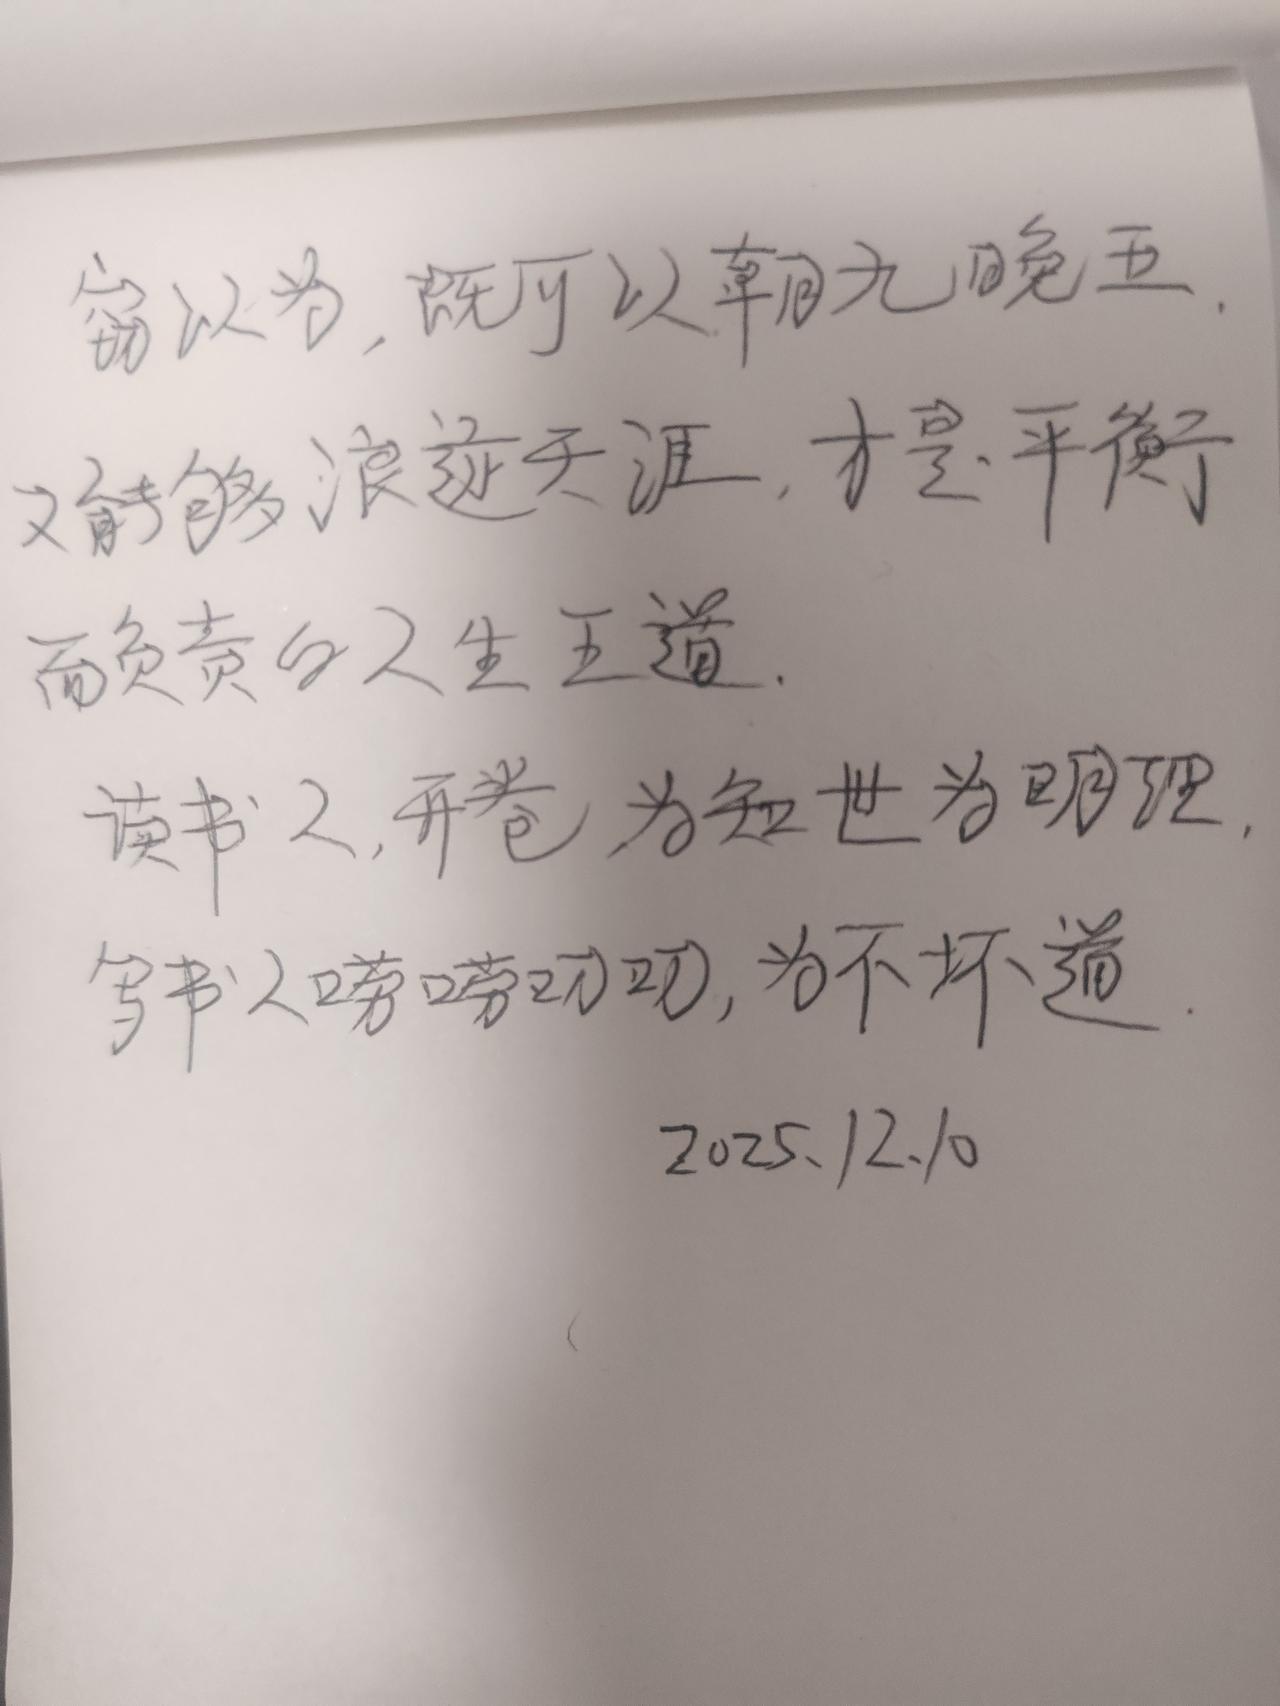 窃以为,既可以朝九晚五,
又能够浪迹天涯,才是平衡
而负责的人生王道.
读书人,开卷为知世为明理,
写书人唠唠叨叨,为不坏道.
2025.12.10